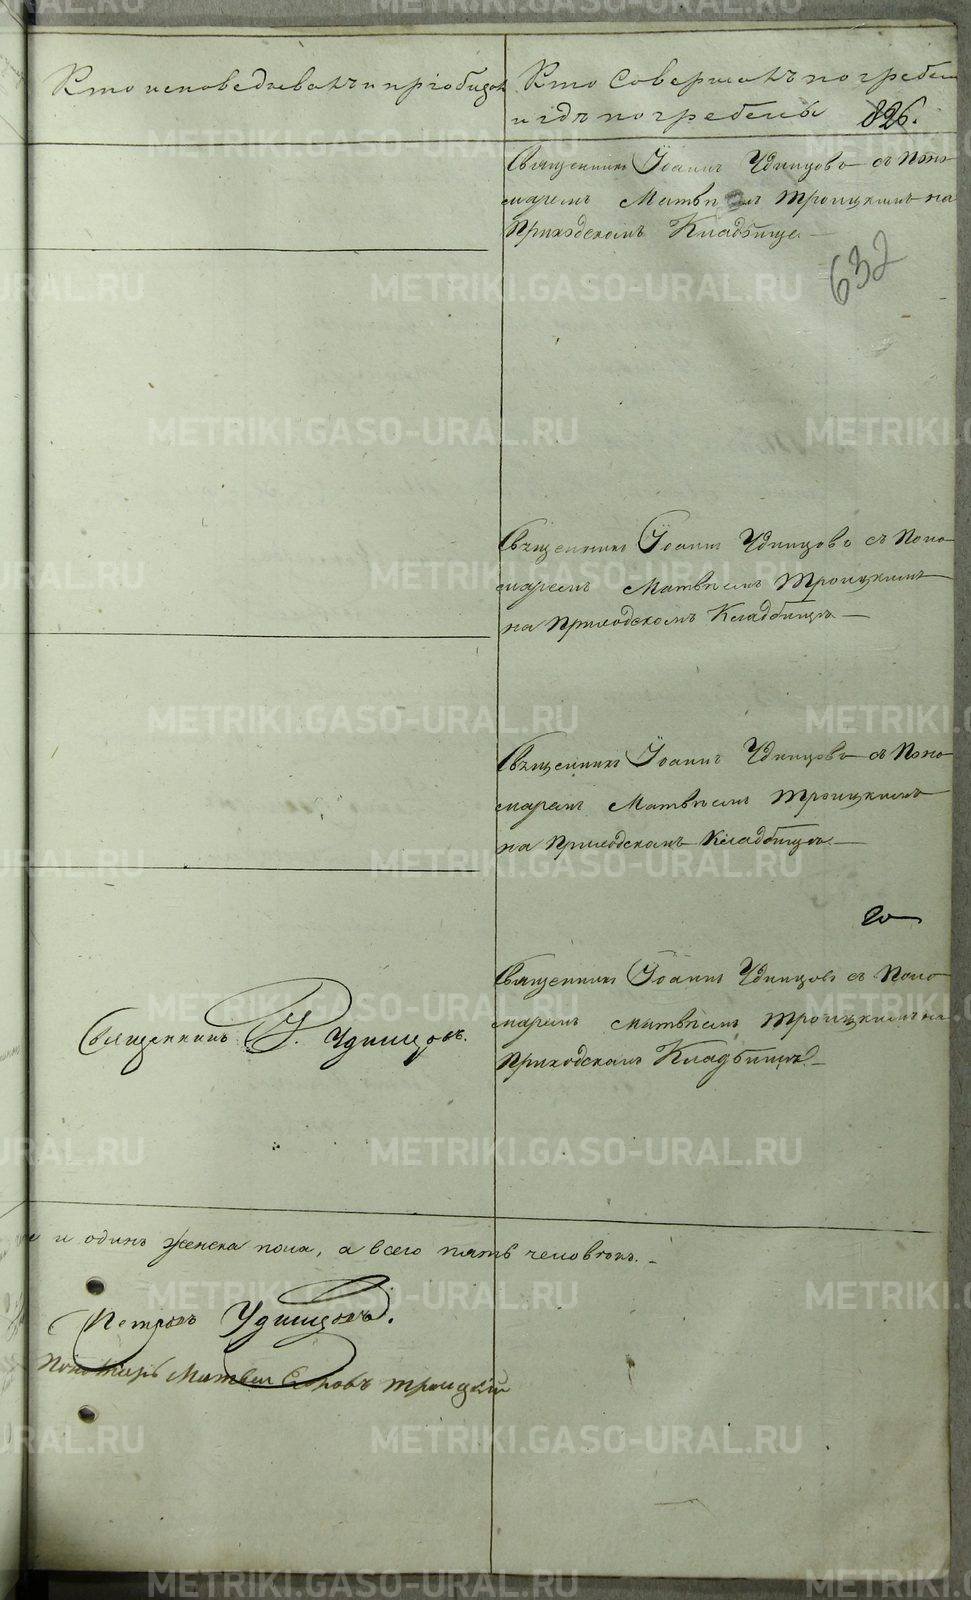 Кто исповедывалъ и пріобщалъ
Кто совершалъ погребен
и гдѣ погребены 826.
Священникъ Іоаннъ Удинцовъ съ Поно
маремъ Матвѣемъ Троицкимъ на
Приходскомъ Кладбище
632
Священникъ Іоаннъ Удинцовъ съ Поно
маремъ Матвѣемъ Троицкимъ
на Приходскомъ Кладбищѣ
Священникъ Іоаннъ Удинцовъ съ Поно
маремъ Матвѣемъ Троицкимъ
на Приходскомъ Кладбищѣ
Священникъ Іоаннъ Удинцовъ съ Поно
маремъ Матвѣемъ Троицкимъ на
Приходскомъ Кладбищѣ
Священникъ І. Удинцовъ.
и одинъ женска пола, а всего пять человѣкъ.
Петровъ Удинцовъ.
Пономарь Матвей Егоровъ Троицкій
METRIKI.GASO-URAL.RU